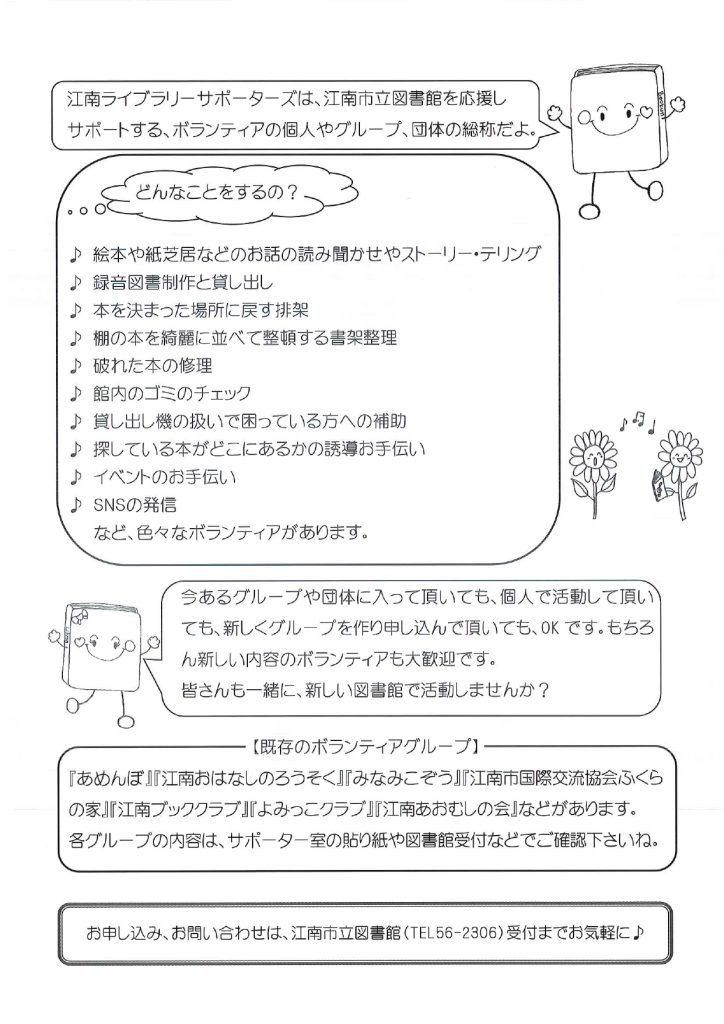 江南ライブラリーサポーターズは、江南市立図書館を応援し
サポートする、ボランティアの個人やグループ、団体の総称だよ。
どんなことをするの？
♪ 絵本や紙芝居などのお話の読み聞かせやストーリー・テリング
♪ 録音図書制作と貸し出し
♪ 本を決まった場所に戻す排架
♪ 棚の本を綺麗に並べて整頓する書架整理
♪ 破れた本の修理
♪ 館内のゴミのチェック
♪ 貸し出し機の扱いで困っている方への補助
♪ 探している本がどこにあるかの誘導お手伝い
♪ イベントのお手伝い
♪ SNSの発信
など、色々なボランティアがあります。
今あるグループや団体に入って頂いても、個人で活動して頂い
ても、新しくグループを作り申し込んで頂いても、OKです。もちろ
ん新しい内容のボランティアも大歓迎です。
皆さんも一緒に、新しい図書館で活動しませんか？
【既存のボランティアグループ】
『あめんぼ』『江南おはなしのろうそく』『みなみこぞう』『江南市国際交流協会ふくら
の家』『江南ブッククラブ』『よみっこクラブ』『江南あおむしの会』などがあります。
各グループの内容は、サポーター室の貼り紙や図書館受付などでご確認下さいね。
お申し込み、お問い合わせは、江南市立図書館（TEL56-2306）受付までお気軽に♪